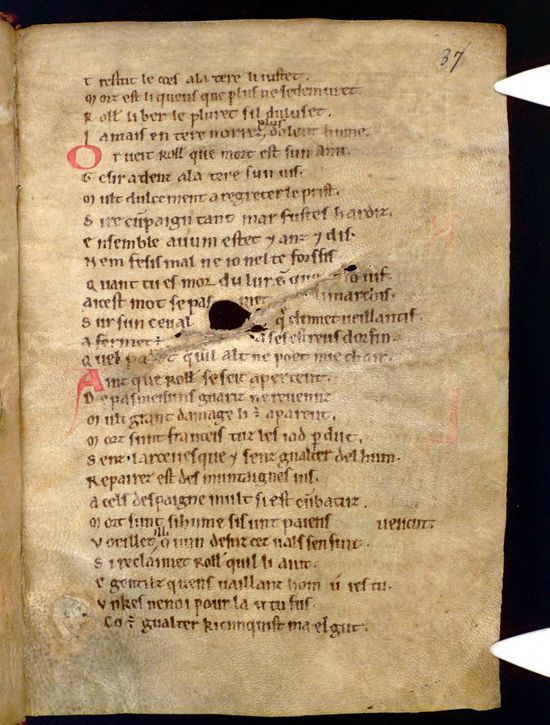 37
T restut le cors a la tere li iustet.
M ort est li quens que plus ne se demuret.
R oll' li ber le pluret sil duluset.
I amais en tere norrez plus dolent hume.
O r veit Roll' que mort est sun ami.
G esir adenz a la tere sun vis.
M ult dulcement a regreter le prist.
S ire cūpaign tant mar fustes hardiz.
E nsemble avum estet ⁊ anz ⁊ dis.
N em fesis mal ne io nel te forsfis.
Q uant tu es mor dulur ē que io vif.
A icest mot se pas met li marchis.
S ur sun ceval q̄ cleimet veillantif.
A fermet a ses estreus dor fin.
Q uel part quil alt ne poet mie chair.
A inz que Roll' se seit aperceut.
D e pasmeisuns guariz ne revenuz
M ult grant damage li ē apareut.
M ort sunt franceis tuz les iad pdut.
S enz larcevesque ⁊ senz gualter del hum.
R epairez est des muntaignes ius.
A cels despaigne mult si est cūbatuz.
M ort sunt si hume sis unt paiens vencut.
V oeillet ill' o nun desuz cez vals sen fuit.
S i reclaimet Roll' quil li aiut.
E gentilz quens vaillant hom u ies tu.
V nkes nen oi pour la u tu fus.
Co ē gualter ki cunquist maelgut.